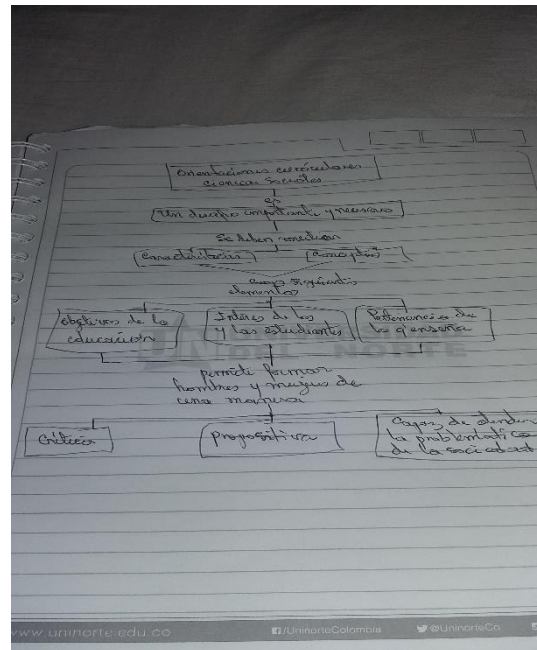 Orientaciones curriculares
ciencias sociales
es
Un diseño importante y necesario
Se deben
Características
conceptos
elementos
objetivos de la
educación
Interes de los
y las estudiantes
la q' enseña
UNINORTE
permite formar
hombres y mujeres de
manera
Criticos
propositiva
Capaz de
la problematica
de la sociedad
www.uninorte.edu.co
/UninorteColombia
@UninorteCo